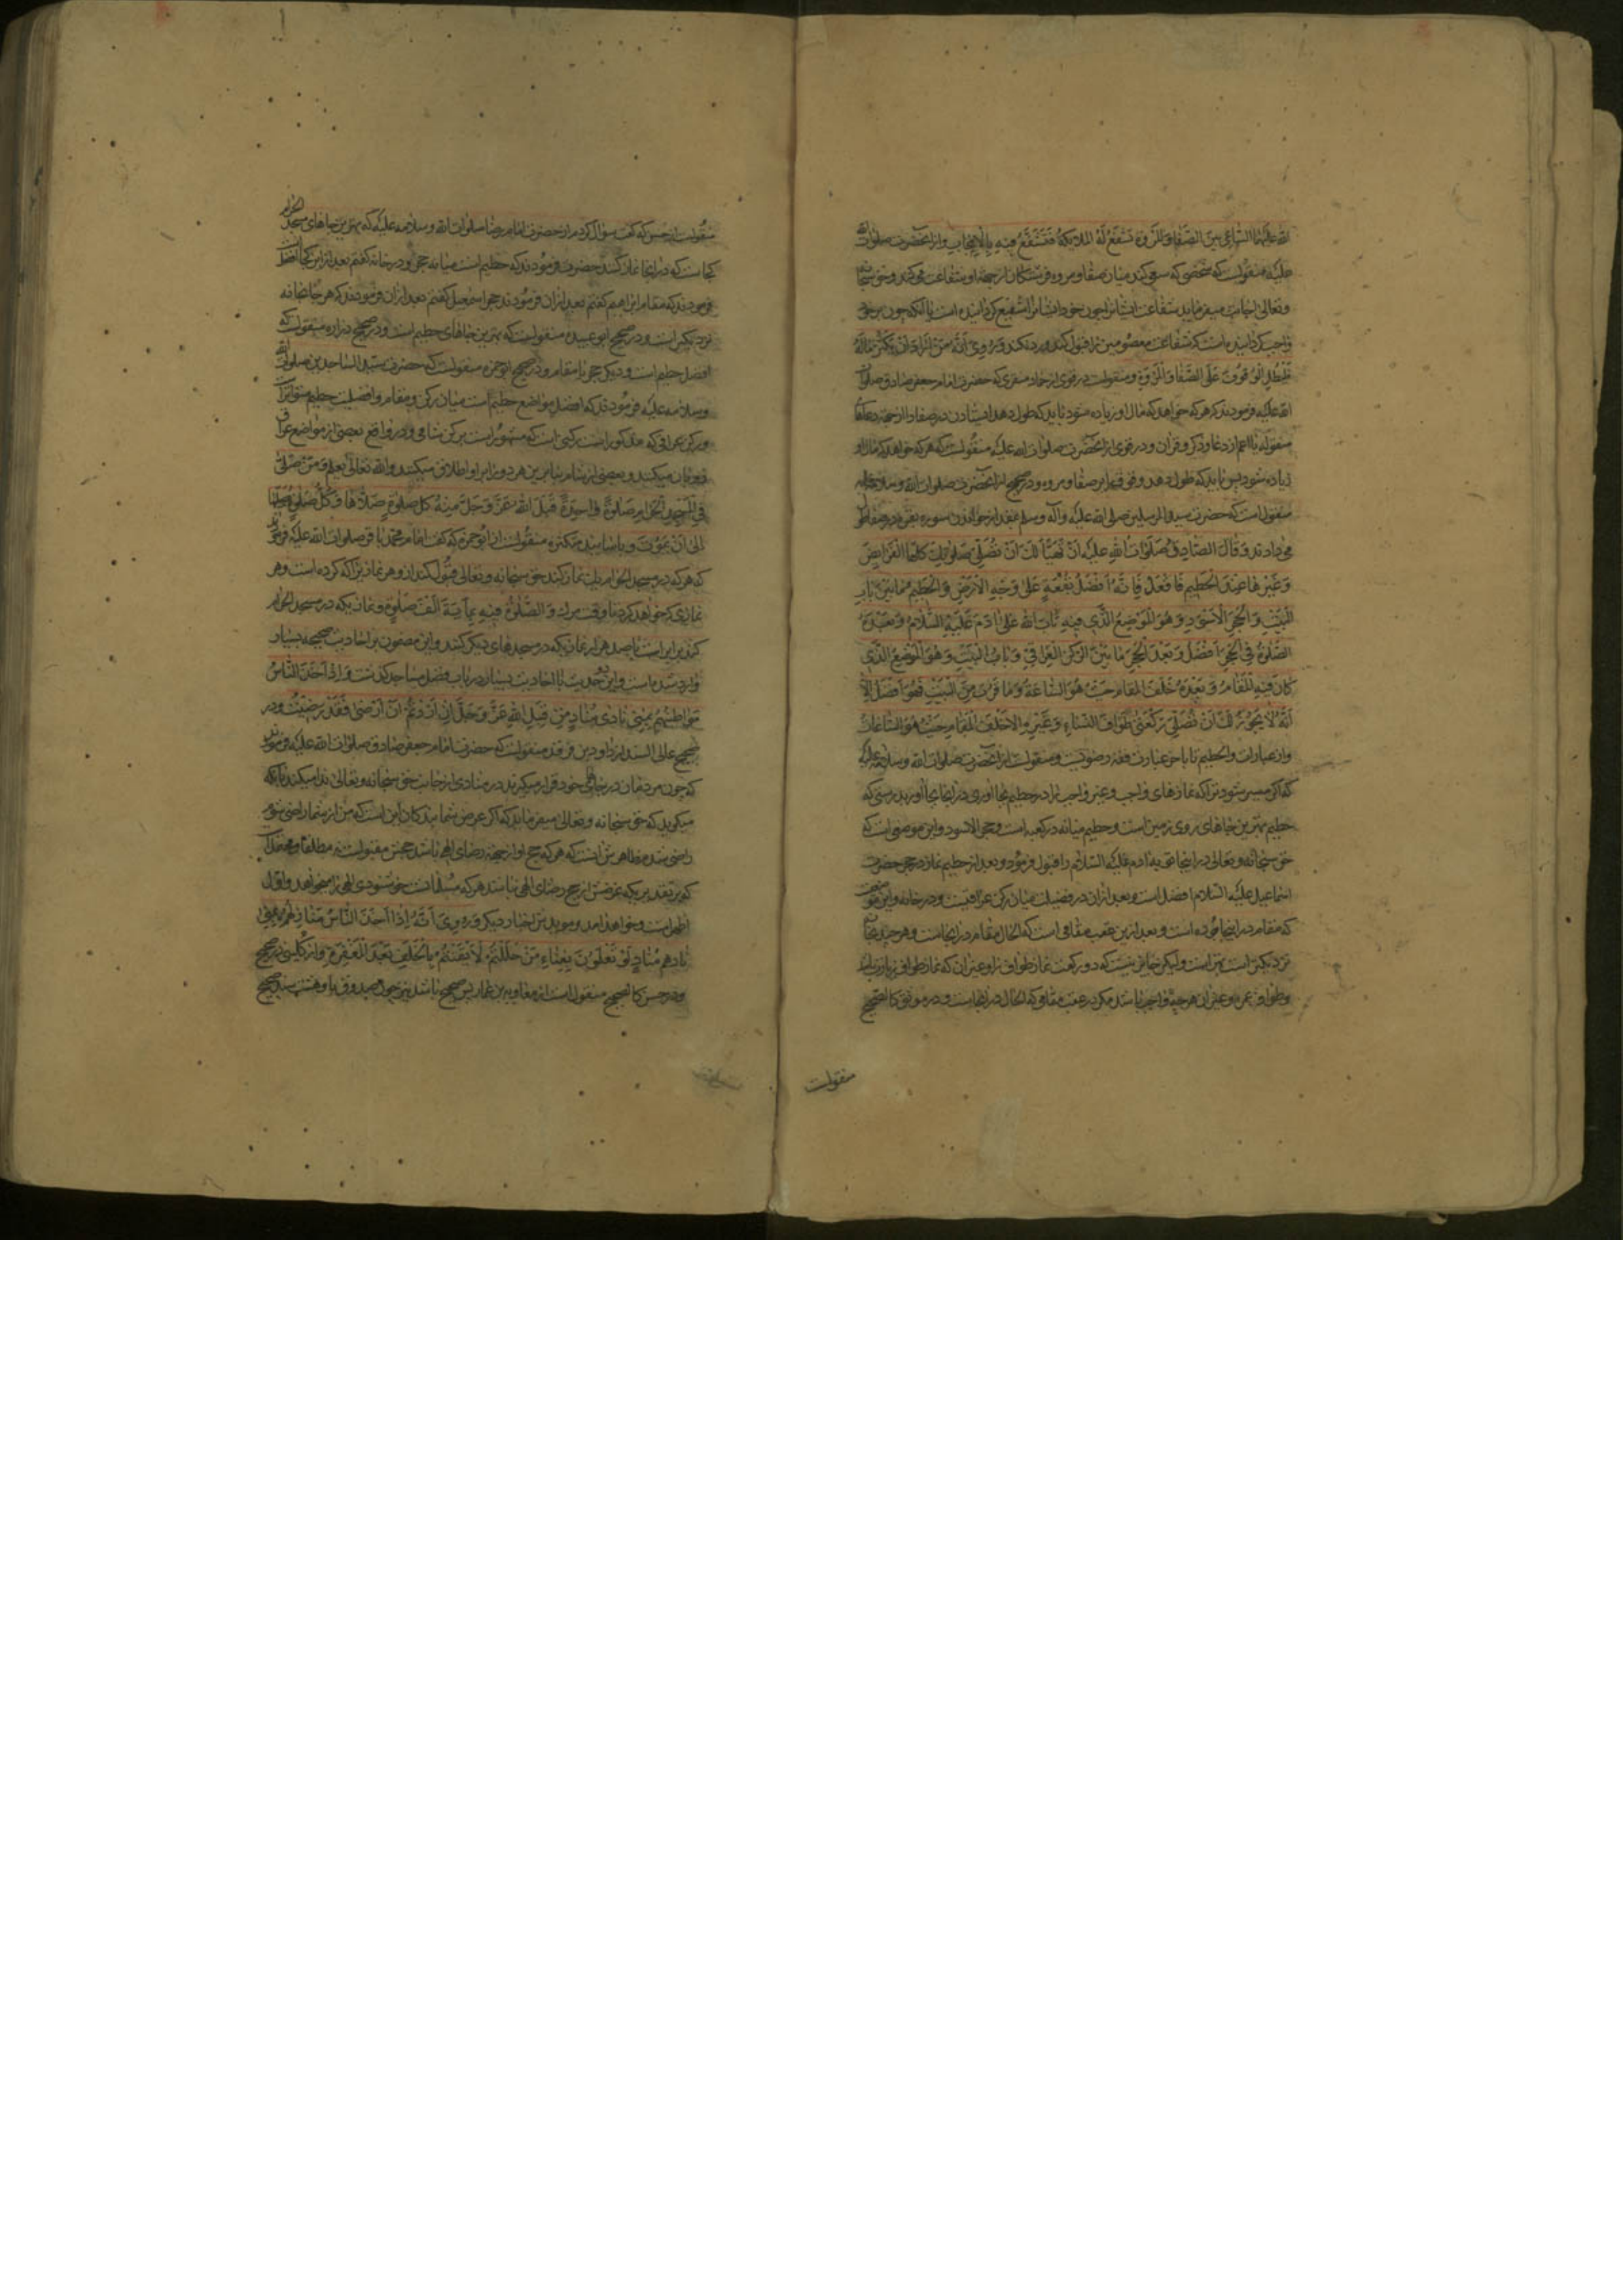 الله علیهما الساعی بین الصفا والمروة تشفع له الملائکة فتشفع فیه بالایجاب واز آنحضرت صلوات الله
علیه منقولست که شخصی که سعی کند میان صفا و مروه فرشتگان از جهة او شفاعت می کنند و حق سبحانه
و تعالی اجابت میفرماید شفاعت ایشانرا چون خود ایشانرا شفیع گردانیده است یا آنکه چون بر خود
واجب گردانیده است که شفاعت معصومین را قبول کند و رد نکند وروی انه من اراد ان یکثر ماله
فلیطل الوقوف علی الصفا والمروة و منقولست در قوی از حماد منقری که حضرت امام جعفر صادق صلوات
الله علیه فرمودند که هر که خواهد که مال او زیاده شود باید که طول دهد ایستادن در صفا را از جهة دعاها
منقوله یا اعم از دعا و ذکر و قرآن و در قوی از آنحضرت صلوات الله علیه منقولست که هر که خواهد که مال او
زیاده شود پس باید که طول دهد وقوف را بر صفا و مروه و در صحیح از آنحضرت صلوات الله وسلامه علیه
منقول است که حضرت سید المرسلین صلی الله علیه وآله وسلم بقدر خواندن سوره بقره در صفا طول
می دادند وقال الصادق صلوات الله علیه ان تهیأ لک ان تصلی صلواتک کلها الفرایض
وغیرها عند الحطیم فافعل فانه افضل بقعة علی وجه الارض والحطیم ما بین باب
البیت والحجر الاسود وهو الموضع الذی فیه تاب الله علی ادم علیه السلام وبعده
الصلوة فی الحجر افضل وبعد الحجر ما بین الرکن العراقی وباب البیت وهو الموضع الذی
کان فیه المقام وبعده خلف المقام حیث هو الساعة وما قرب من البیت فهو افضل الا
انه لا یجوز لک ان تصلی رکعتی طواف النساء وغیره الا خلف المقام حیث هو الساعة
واز عبارات والحطیم تا باخر عبارت فقه رضویست و منقولست از آنحضرت صلوات الله وسلامه علیه
که اگر میسر شود ترا که نمازهای واجب و غیر واجب را در حطیم بجا آوری در آنجا بجا آور بدرستی که
حطیم بهترین جاهای روی زمین است و حطیم میانه در کعبه است و حجر الاسود و این موضعی است که
حق سبحانه و تعالی در اینجا توبه آدم علیه السلام را قبول فرمود و بعد از حطیم نماز در حجر حضرت
اسماعیل علیه السلام افضل است و بعد از آن در فضیلت میان رکن عراقیست و در خانه و این موضعیست
که مقام در اینجا بوده است و بعد ازین عقب مقامی است که الحال مقام در آنجاست و هر چند بخانه
نزدیکتر است بهتر است ولیکن جایز نیست که دو رکعت نماز طواف نسا و غیر آن که نماز طواف زیارتست
و طواف عمره و غیر آن هر چه واجب باشد مگر در عقب مقامی که الحال در آنجاست و در موثق کالصحیح
منقولست
منقولست از حسن که گفت سؤال کردم از حضرت امام رضا صلوات الله وسلامه علیه که بهترین جاهای مسجد الحرام
کجاست که در آنجا نماز کنند حضرت فرمودند که حطیم است میانه حجر و در خانه گفتم بعد از این کجا افضل است
فرمودند که مقام ابراهیم گفتم بعد از آن فرمودند حجر اسمعیل گفتم بعد از آن فرمودند که هر جا بخانه
نزدیکتر است و در صحیح ابو عبیده منقولست که بهترین جاهای حطیم است و در صحیح زراره منقولست که
افضل حطیم است و دیگر حجر یا مقام و در صحیح ابو حمزه منقولست که حضرت سید الساجدین صلوات الله
وسلامه علیه فرمودند که افضل مواضع حطیم است میان رکن و مقام وافضلیت حطیم متواتر است
و رکن عراقی که مذکور است رکنی است که مشهور است برکن شامی و در واقع بعضی از مواضع عراق
فی المسجد الحرام صلوة واحدة قبل الله عز وجل منه کل صلوة صلاها وکل صلوة یصلیها
الی ان یموت و باسانید متکثره منقولست از ابو حمزه که گفت امام محمد باقر صلوات الله علیه فرمود
که هر که در مسجد الحرام یک نماز کند حق سبحانه و تعالی قبول کند ازو هر نمازیرا که کرده است و هر
نمازی که خواهد کرد تا وقت مرگ والصلوة فیه بمایة الف صلوة و نمازیکه در مسجد الحرام
کنند برابر است با صد هزار نمازیکه در مسجدهای دیگر کنند و این مضمون بر احادیث صحیحه بسیار
وارد شده است و این حدیث با احادیث بسیار در باب فضل مساجد گذشت واذا اخذ الناس
مواطنهم بمنی نادی مناد من قبل الله عز وجل ان اردتم ان ارضی فقد رضیت و در
صحیح عالی السند از داود بن فرقد منقولست که حضرت امام جعفر صادق صلوات الله علیه فرمودند
که چون مردمان در جاهای خود قرار میگیرند در منا منادی از جانب حق سبحانه و تعالی ندا میکند بآنکه
میگوید که حق سبحانه و تعالی میفرماید که اگر غرض شما بندگان این است که من از شما راضی شوم
راضی شدم
که بر تقدیریکه غرضش از حج رضای الهی باشد
اظهر است
نادهم مناد لو تعلمون بفناء من حللتم لایقنتم بالخلف بعد المغفرة و از کلینی در صحیح
و در حسن کالصحیح منقول است از معاویه بن عمار